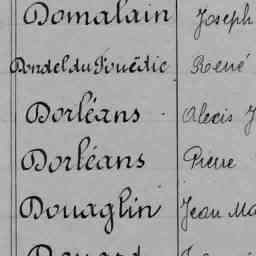 Domalain Joseph
Dondel du Fouëdic René
Dorléans Alexis
Dorléans Pierre
Douaglin Jean
Douard